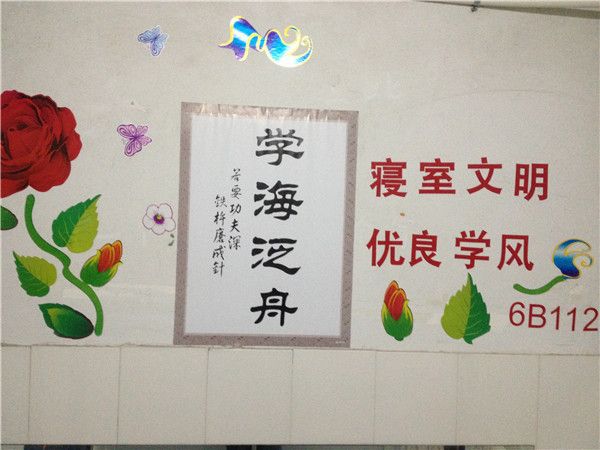 学海泛舟
若要功夫深
铁杵磨成针
寝室文明
优良学风
6B112